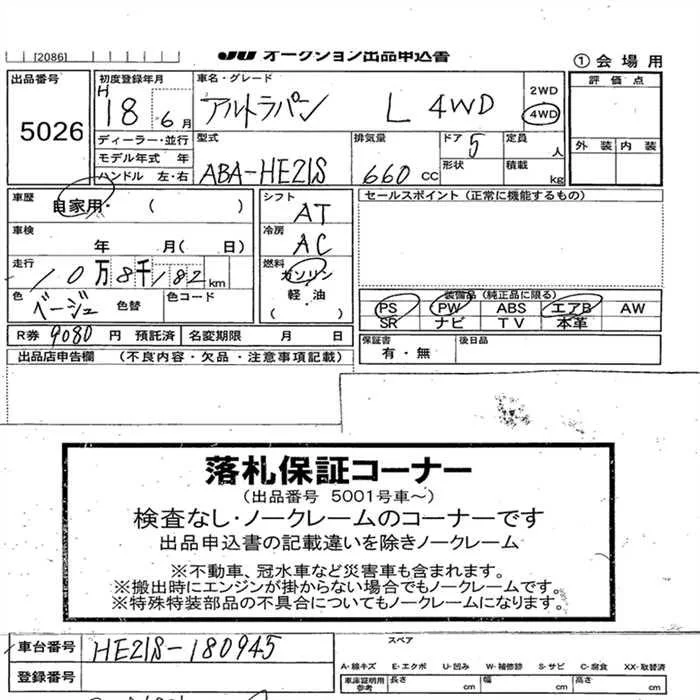 [2086]
JU オークション出品申込書
①会場用
出品番号
5026
初度登録年月
H
18 6月
車名・グレード
アルトラパン L 4WD
2WD
4WD
評価点
外装 内装
ディーラー・並行
モデル年式 年
ハンドル 左・右
型式
ABA-HE21S
排気量
660 CC
ドア
5
形状
定員
人
積載
kg
車歴
自家用・( )
シフト
AT
セールスポイント (正常に機能するもの)
車検
年 月( 日)
冷房
AC
走行
10万8千182 km
燃料
ガソリン
軽・油
( )
色
ベージュ
色替
色コード
装備品(純正品に限る)
PS PW ABS エアB AW
SR ナビ TV 本革
R券 9080 円 預託済
名変期限 月 日
保証書
有・無
後日品
出品店申告欄 (不良内容・欠品・注意事項記載)
落札保証コーナー
(出品番号 5001号車~)
検査なし・ノークレームのコーナーです
出品申込書の記載違いを除きノークレーム
※不動車、冠水車など災害車も含まれます。
※搬出時にエンジンが掛からない場合でもノークレームです。
※特殊特装部品の不具合についてもノークレームになります。
車台番号
HE21S-180945
登録番号
スペア
A-線キズ E-エクボ U-凹み W-補修跡 S-サビ C-腐食 XX-取替済
車庫証明用
参考
長さ cm 幅 cm 高さ cm